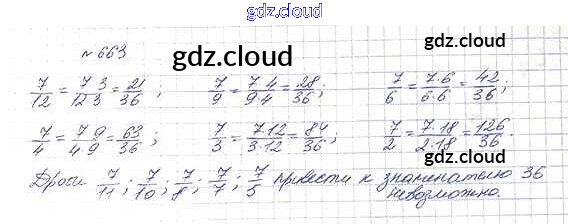 gdz.cloud
№663
gdz.cloud gdz.cloud
7/12 = 7 3/12 3 = 21/36 ; 7/9 = 7 4/9 4 = 28/36 ; 7/6 = 7·6/6·6 = 42/36 ;
7/4 = 7 9/4 9 = 63/36 ; 7/3 = 7·12/3·12 = 84/36 ; 7/2 = 7·18/2·18 = 126/36 .
gdz.cloud gdz.cloud
Дроби 7/11 ; 7/10 ; 7/8 ; 7/7 ; 7/5 привести к знаменателю 36
невозможно.
gdz.cloud